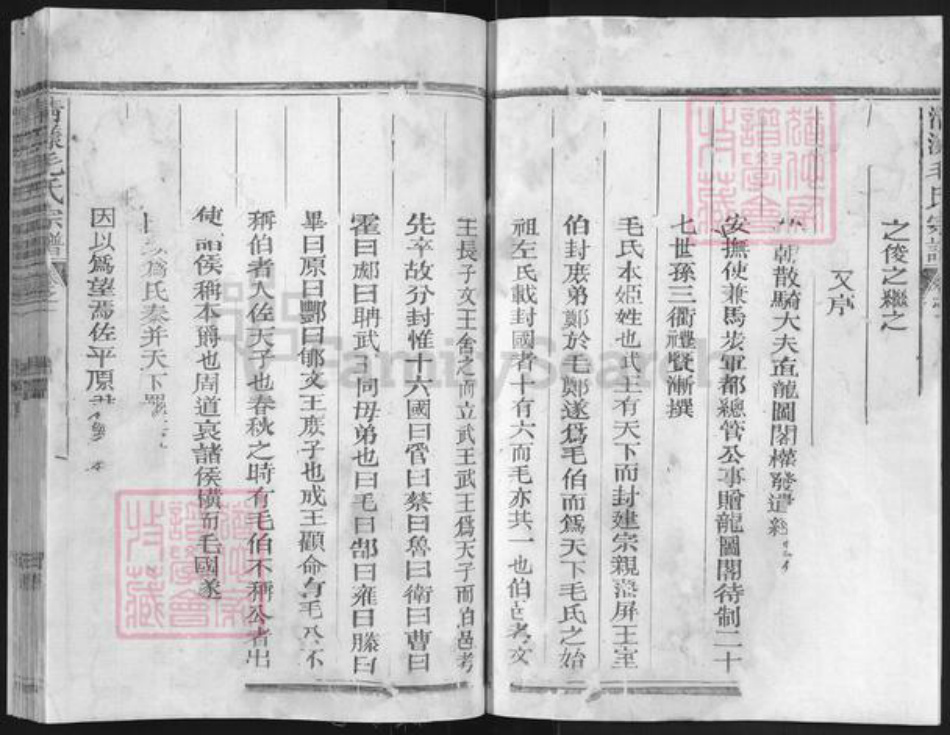 毛氏宗譜
之俊之繼之
又序
朝散騎大夫直龍圖閣權發遣經
安撫使兼馬步軍都總管公事贈龍圖閣待制二十
七世孫三衢禮賢漸撰
毛氏本姬姓也武王有天下而封建宗親藩屏王室
伯封庶弟鄭於毛鄭遂爲毛伯而爲天下毛氏之始
祖左氏載封國者十有六而毛亦其一也伯邑考文
王長子文王舍之而立武王武王爲天子而伯邑考
先卒故分封惟十六國曰管曰蔡曰魯曰衛曰曹曰
霍曰郕曰聃武同母弟也曰毛曰郜曰雍曰滕曰
畢曰原曰酆曰郇文王庶子也成王顧命有毛公不
稱伯者入佐天子也春秋之時有毛伯不稱公者出
使諸侯稱本爵也周道衰諸侯橫而毛國遂
爲氏秦并天下
因以爲望焉佐平原君
毛氏宗譜
FamilySearch
譜學會
收藏
譜學會
收藏